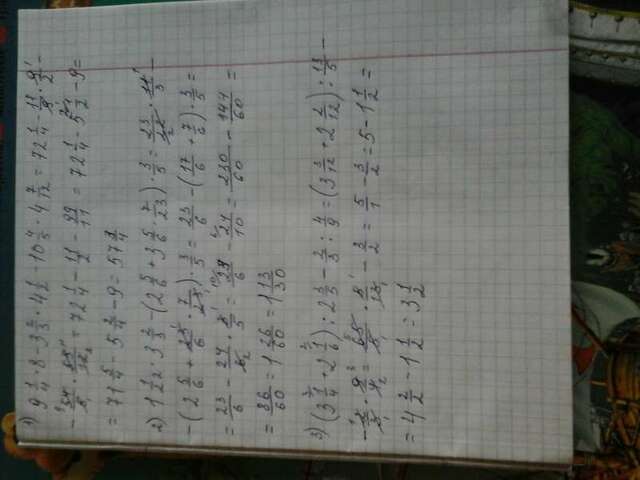 1) 9 1/4 · 8 - 3 2/3 · 4 1/2 - 10 4/5 · 4 7/12 = 72 1/4 - 11/3 · 9/2 -
- 54/5 · 55/12 = 72 1/4 - 11/2 - 99/11 = 72 1/4 - 5 1/2 - 9 =
= 71 5/4 - 5 2/4 - 9 = 57 3/4
2) 1 1/22 · 3 2/3 - (2 5/6 + 3 5/6 · 7/23) · 3/5 = 23/22 · 11/3 -
- (2 5/6 + 23/6 · 7/23) · 3/5 = 23/6 - (17/6 + 7/6) · 3/5 =
= 23/6 - 24/6 · 3/5 = 23/6 - 24/10 = 230/60 - 144/60 =
= 86/60 = 1 26/60 = 1 13/30
3) (3 1/4 + 2 1/6) : 2 3/5 - 2/3 : 4/9 = (3 3/12 + 2 2/12) : 13/5 -
- 2/3 · 9/4 = 65/12 · 5/13 - 3/2 = 5/1 - 3/2 = 5 - 1 1/2 =
= 4 2/2 - 1 1/2 = 3 1/2